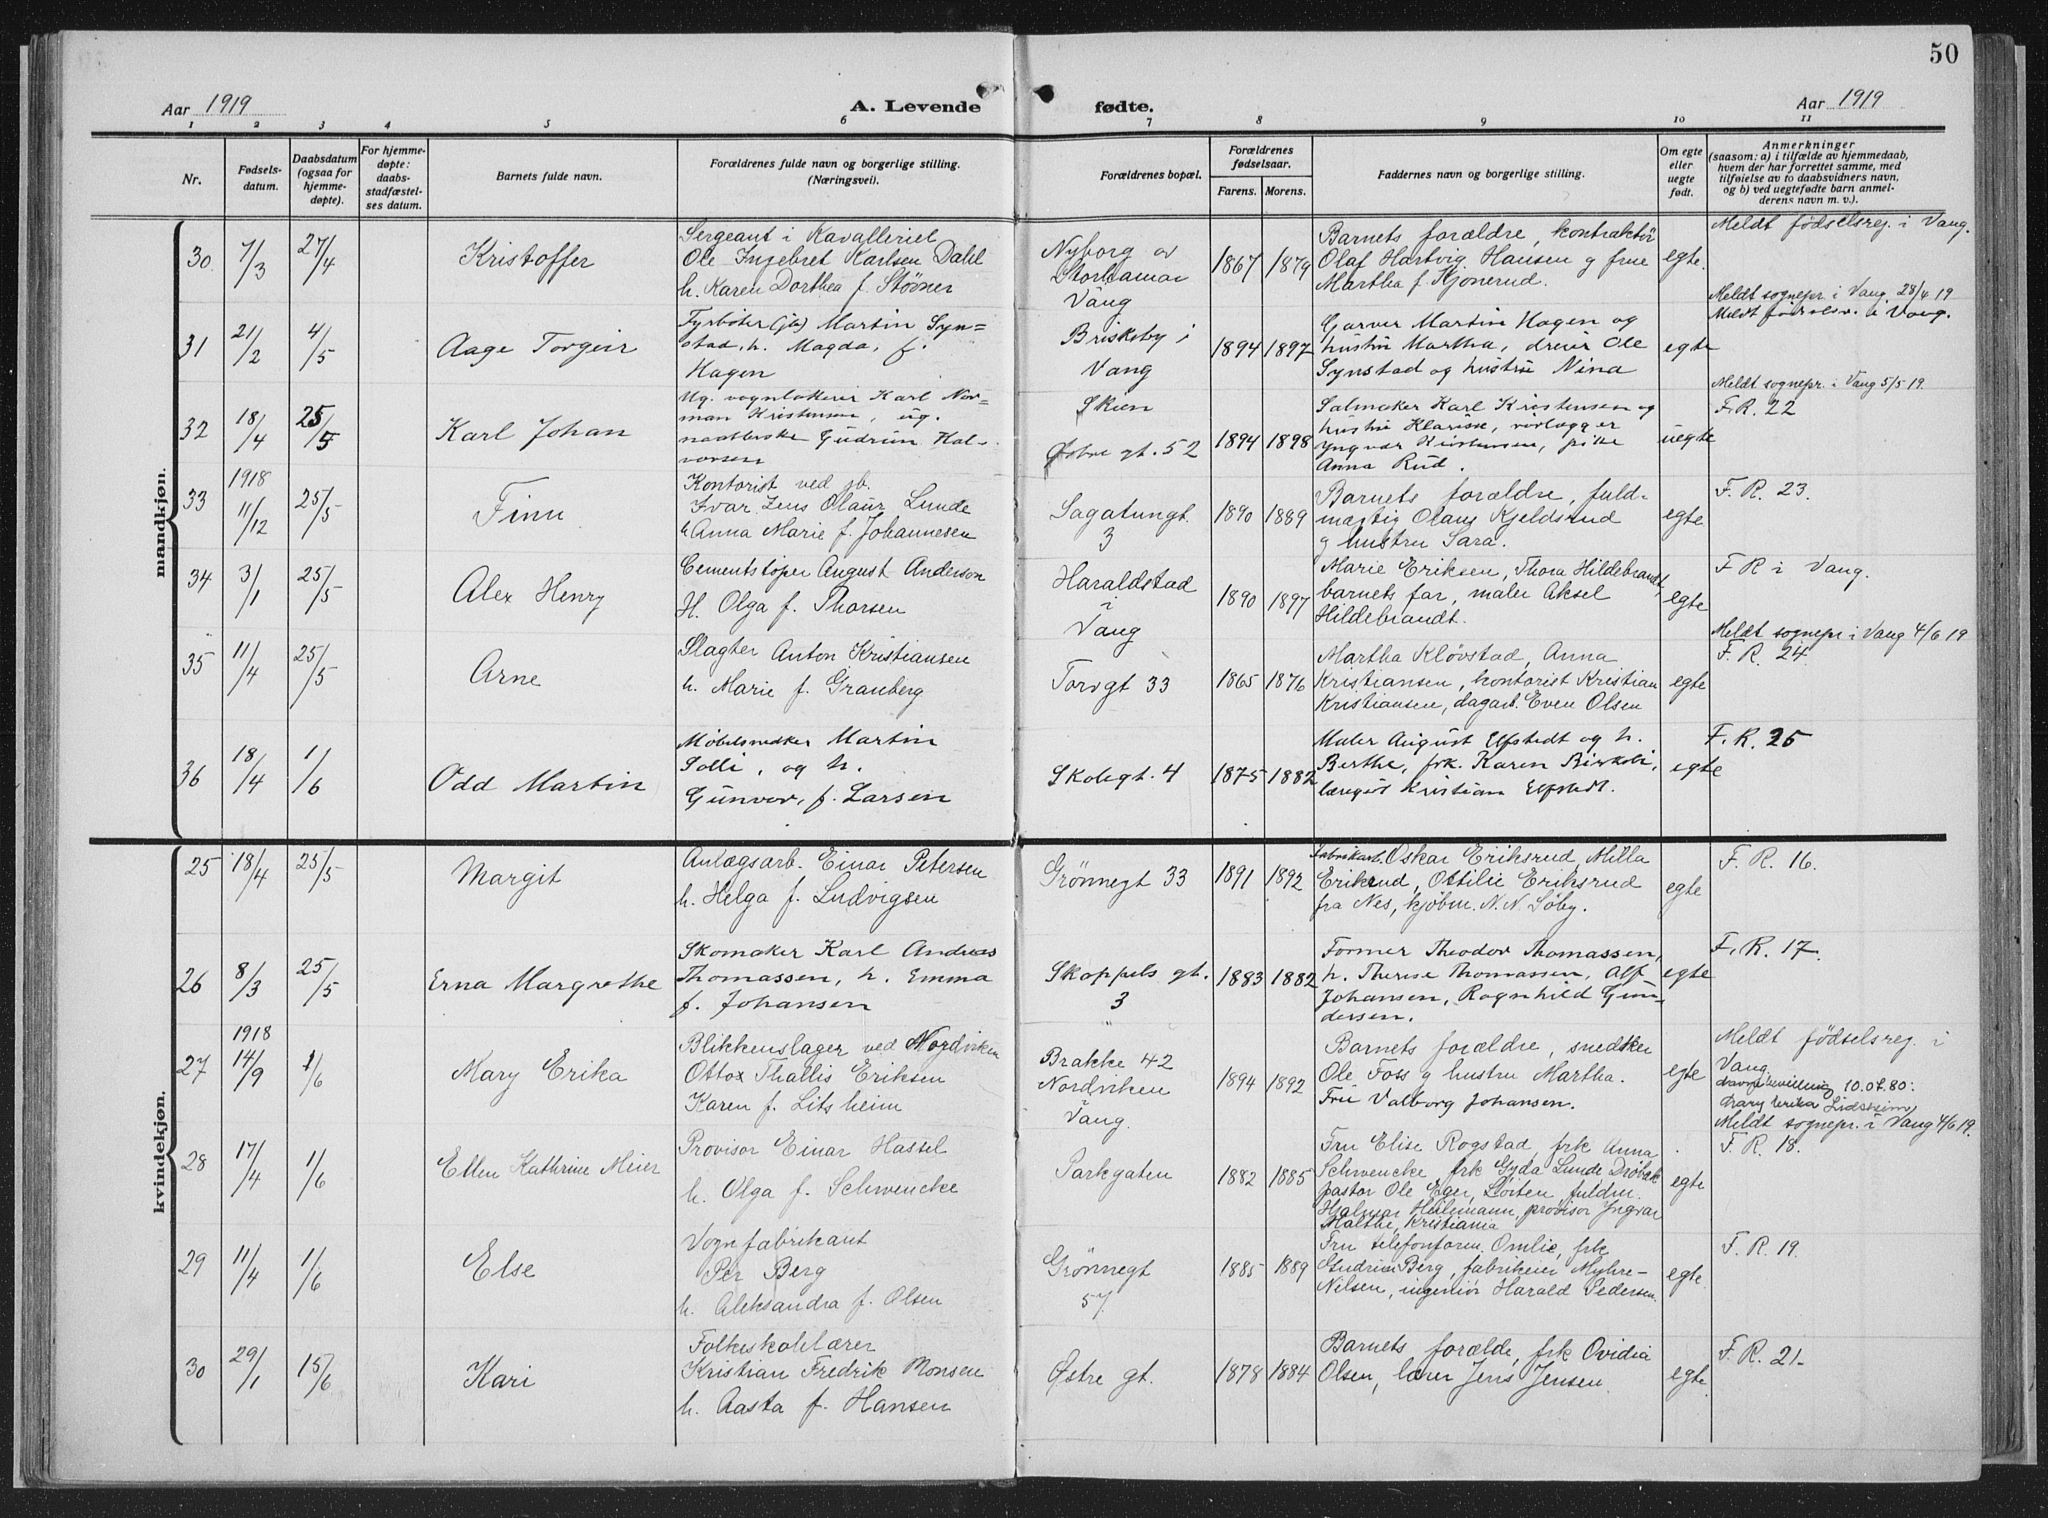 50
Aar 1919 A. Levende fødte. Aar 1919
1 2 3 4 5 6 7 8 9 10 11
Nr. Fødsels-datum. Daabsdatum (ogsaa for hjemme-døpte). For hjemme-døpte: daabs-stadfæstel-ses datum. Barnets fulde navn. Forældrenes fulde navn og borgerlige stilling. (Næringsvei). Forældrenes bopæl. Forældrenes fødselsaar. Farens. Morens. Faddernes navn og borgerlige stilling. Om egte eller uegte født. Anmerkninger (saasom: a) i tilfælde av hjemmedaab, hvem der har forrettet samme, med tilføielse av to daabsvidners navn, og b) ved uegtefødte barn anmel-derens navn m. v.).
mandkjøn.
30 7/3 27/4 Kristoffer
Sergeant i Kavalleriet
Ole Ingebret Karlsen Dahl
h. Karen Dorthea f. Stövner
Nyborg av
Storhamar
Vang
1867 1879
Barnets forældre, kontraktör
Olaf Hartvig Hansen g frue
Martha f. Kjonerud.
egte.
Meldt födselsreg. i Vang.
Meldt sognepr. i Vang 28/4 19
31 21/2 4/5 Aage Torgeir
Fyrböter (jb) Martin Syn=
stad, h. Magda, f.
Hagen
Briskeby i
Vang
1894 1897
Garver Martin Hagen og
hustru Martha, dreier Ole
Synstad og hustru Nina
egte
Meldt födselsr. i Vang.
Meldt sognepr. i Vang 5/5 19.
32 18/4 25/5 Karl Johan
Ug. vognlakerer Karl Nor=
man Kristensen, ug.
Gudrun Hal-
vorsen
Skien
Østre gt. 52
1894 1898
Salmaker Karl Kristensen og
hustru Klarisse, rörlægger
Yngvar Kristensen, pike
Anna Rud.
uegte
F. R. 22
33 1918 11/12 25/5 Finn
Kontorist ved jb.
Ivar Jens Olaur Lunde
h Anna Marie f. Johannesen
Sagatungt.
3
1890 1889
Barnets forældre, fuld-
mægtig Olaus Kjeldsrud
g hustru Sara.
egte
F. R. 23.
34 3/1 25/5 Alex Henry
Cementstöper August Anderson
H. Olga f. Thorsen
Haraldstad
i
Vang
1890 1897
Marie Eriksen, Thora Hildebrandt,
barnets far, maler Aksel
Hildebrandt.
egte
F R i Vang.
Meldt sognepr. i Vang 4/6 19
35 11/4 25/5 Arne
Slagter Anton Kristiansen
h. Marie f. Granberg
Torvgt 33
1865 1876
Martha Klövstad, Anna
Kristiansen, kontorist Kristian
Kristiansen, dagarb. Even Olsen
egte
F. R. 24
36 18/4 1/6 Odd Martin
Möbelsnedker Martin
Solli, og h.
Gunvor, f. Larsen
Skolegt. 4
1875 1882
Maler August Elfstedt og h.
Berthe, frk. Karen
Kristian Elfstedt.
egte
F. R. 25
kvindekjøn.
25 18/4 25/5 Margit
Anlægsarb. Einar Petersen
h. Helga f. Ludvigsen
Grönnegt 33
1891 1892
fabrikarb. Oskar Eriksrud, Milla
Eriksrud, Ottilie Eriksrud
fra Nes, kjöbm. N. N. Söby.
egte
F. R. 16.
26 8/3 25/5 Erna Margrethe
Skomaker Karl Andreas
Thomassen, h. Emma
f. Johansen
Skappels gt.
3
1883 1882
Former Theodor Thomassen,
h. Therese Thomassen, Alf
Johansen, Ragnhild Gun-
dersen.
egte
F. R. 17.
27 1918 14/9 1/6 Mary Erika
Blikkenslager ved Nordviken
Otto Thallis Eriksen
Karen f. Litsheim
Brakke 42
Nordviken
Vang.
1894 1892
Barnets forældre, snedker
Ole Foss g hustru Martha.
Fru Valborg Johansen.
egte
Meldt födselsreg. i
Vang.
Navnebevilling 10.07.80:
Mary Erika Lidsheim
Meldt sognepr. i Vang 4/6 19.
28 17/4 1/6 Ellen Kathrine Meier
Provisor Einar Hassel
h. Olga f. Schwencke
Parkgaten
1882 1885
Fru Elise Rogstad, frk Anna
Schwencke, frk Gyda Lunde Dröbak
pastor Ole Eger, Löiten, fuldm.
Hjalmar Heilemann, provisor Yngvar
Malthe, Kristiania
egte
F. R. 18.
29 11/4 1/6 Else
Vognfabrikant
Per Berg
h. Aleksandra f. Olsen
Grönnegt
57
1885 1889
Fru telefonforem. Omlie, frk
Gudrun Berg, fabrikeier Myhre-
Nilsen, ingeniör Harald Pedersen.
egte.
F. R. 19.
30 29/1 15/6 Kari
Folkeskolelærer
Kristian Fredrik Monsen
h. Aasta f. Hansen
Østre gt.
1878 1884
Barnets forælde, frk Ovidia
Olsen, lærer Jens Jensen.
egte.
F. R. 21-